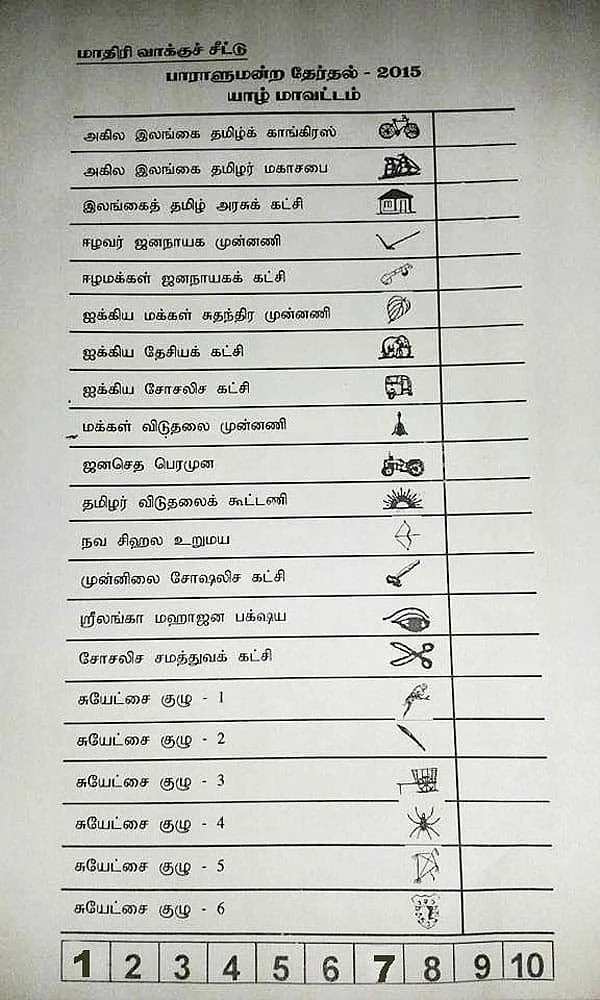 மாதிரி வாக்குச் சீட்டு
பாராளுமன்ற தேர்தல் - 2015
யாழ் மாவட்டம்
அகில இலங்கை தமிழ்க் காங்கிரஸ்
அகில இலங்கை தமிழர் மகாசபை
இலங்கைத் தமிழ் அரசுக் கட்சி
ஈழவர் ஜனநாயக முன்னணி
ஈழமக்கள் ஜனநாயகக் கட்சி
ஐக்கிய மக்கள் சுதந்திர முன்னணி
ஐக்கிய தேசியக் கட்சி
ஐக்கிய சோசலிச கட்சி
மக்கள் விடுதலை முன்னணி
ஜனசெத பெரமுன
தமிழர் விடுதலைக் கூட்டணி
நவ சிஹல உறுமய
முன்னிலை சோஷலிச கட்சி
ஸ்ரீலங்கா மஹாஜன பக்ஷய
சோசலிச சமத்துவக் கட்சி
சுயேட்சை குழு - 1
சுயேட்சை குழு - 2
சுயேட்சை குழு - 3
சுயேட்சை குழு - 4
சுயேட்சை குழு - 5
சுயேட்சை குழு - 6
1 2 3 4 5 6 7 8 9 10